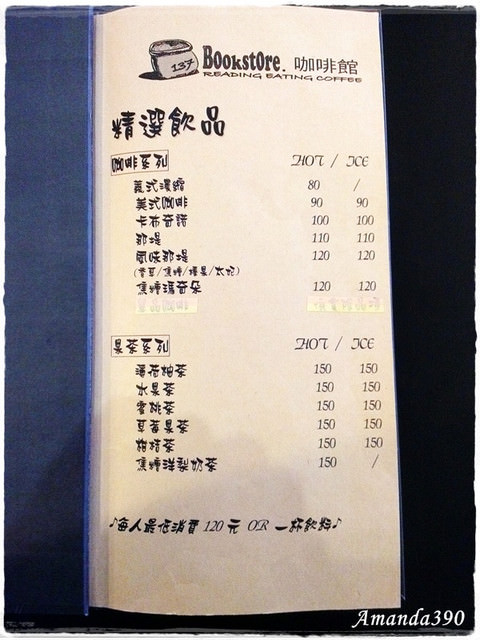 137 Bookstore. 咖啡館
READING EATING COFFEE
精選飲品
咖啡系列 HOT / ICE
義式濃縮 80 /
美式咖啡 90 90
卡布奇諾 100 100
那堤 110 110
風味那堤 120 120
(香草/焦糖/榛果/太妃)
焦糖瑪奇朵 120 120
果茶系列 HOT / ICE
薄荷柚茶 150 150
水果茶 150 150
蜜桃茶 150 150
草莓果茶 150 150
柑桔茶 150 150
焦糖洋梨奶茶 150 /
♪每人最低消費 120 元 OR 一杯飲料♪
Amanda390